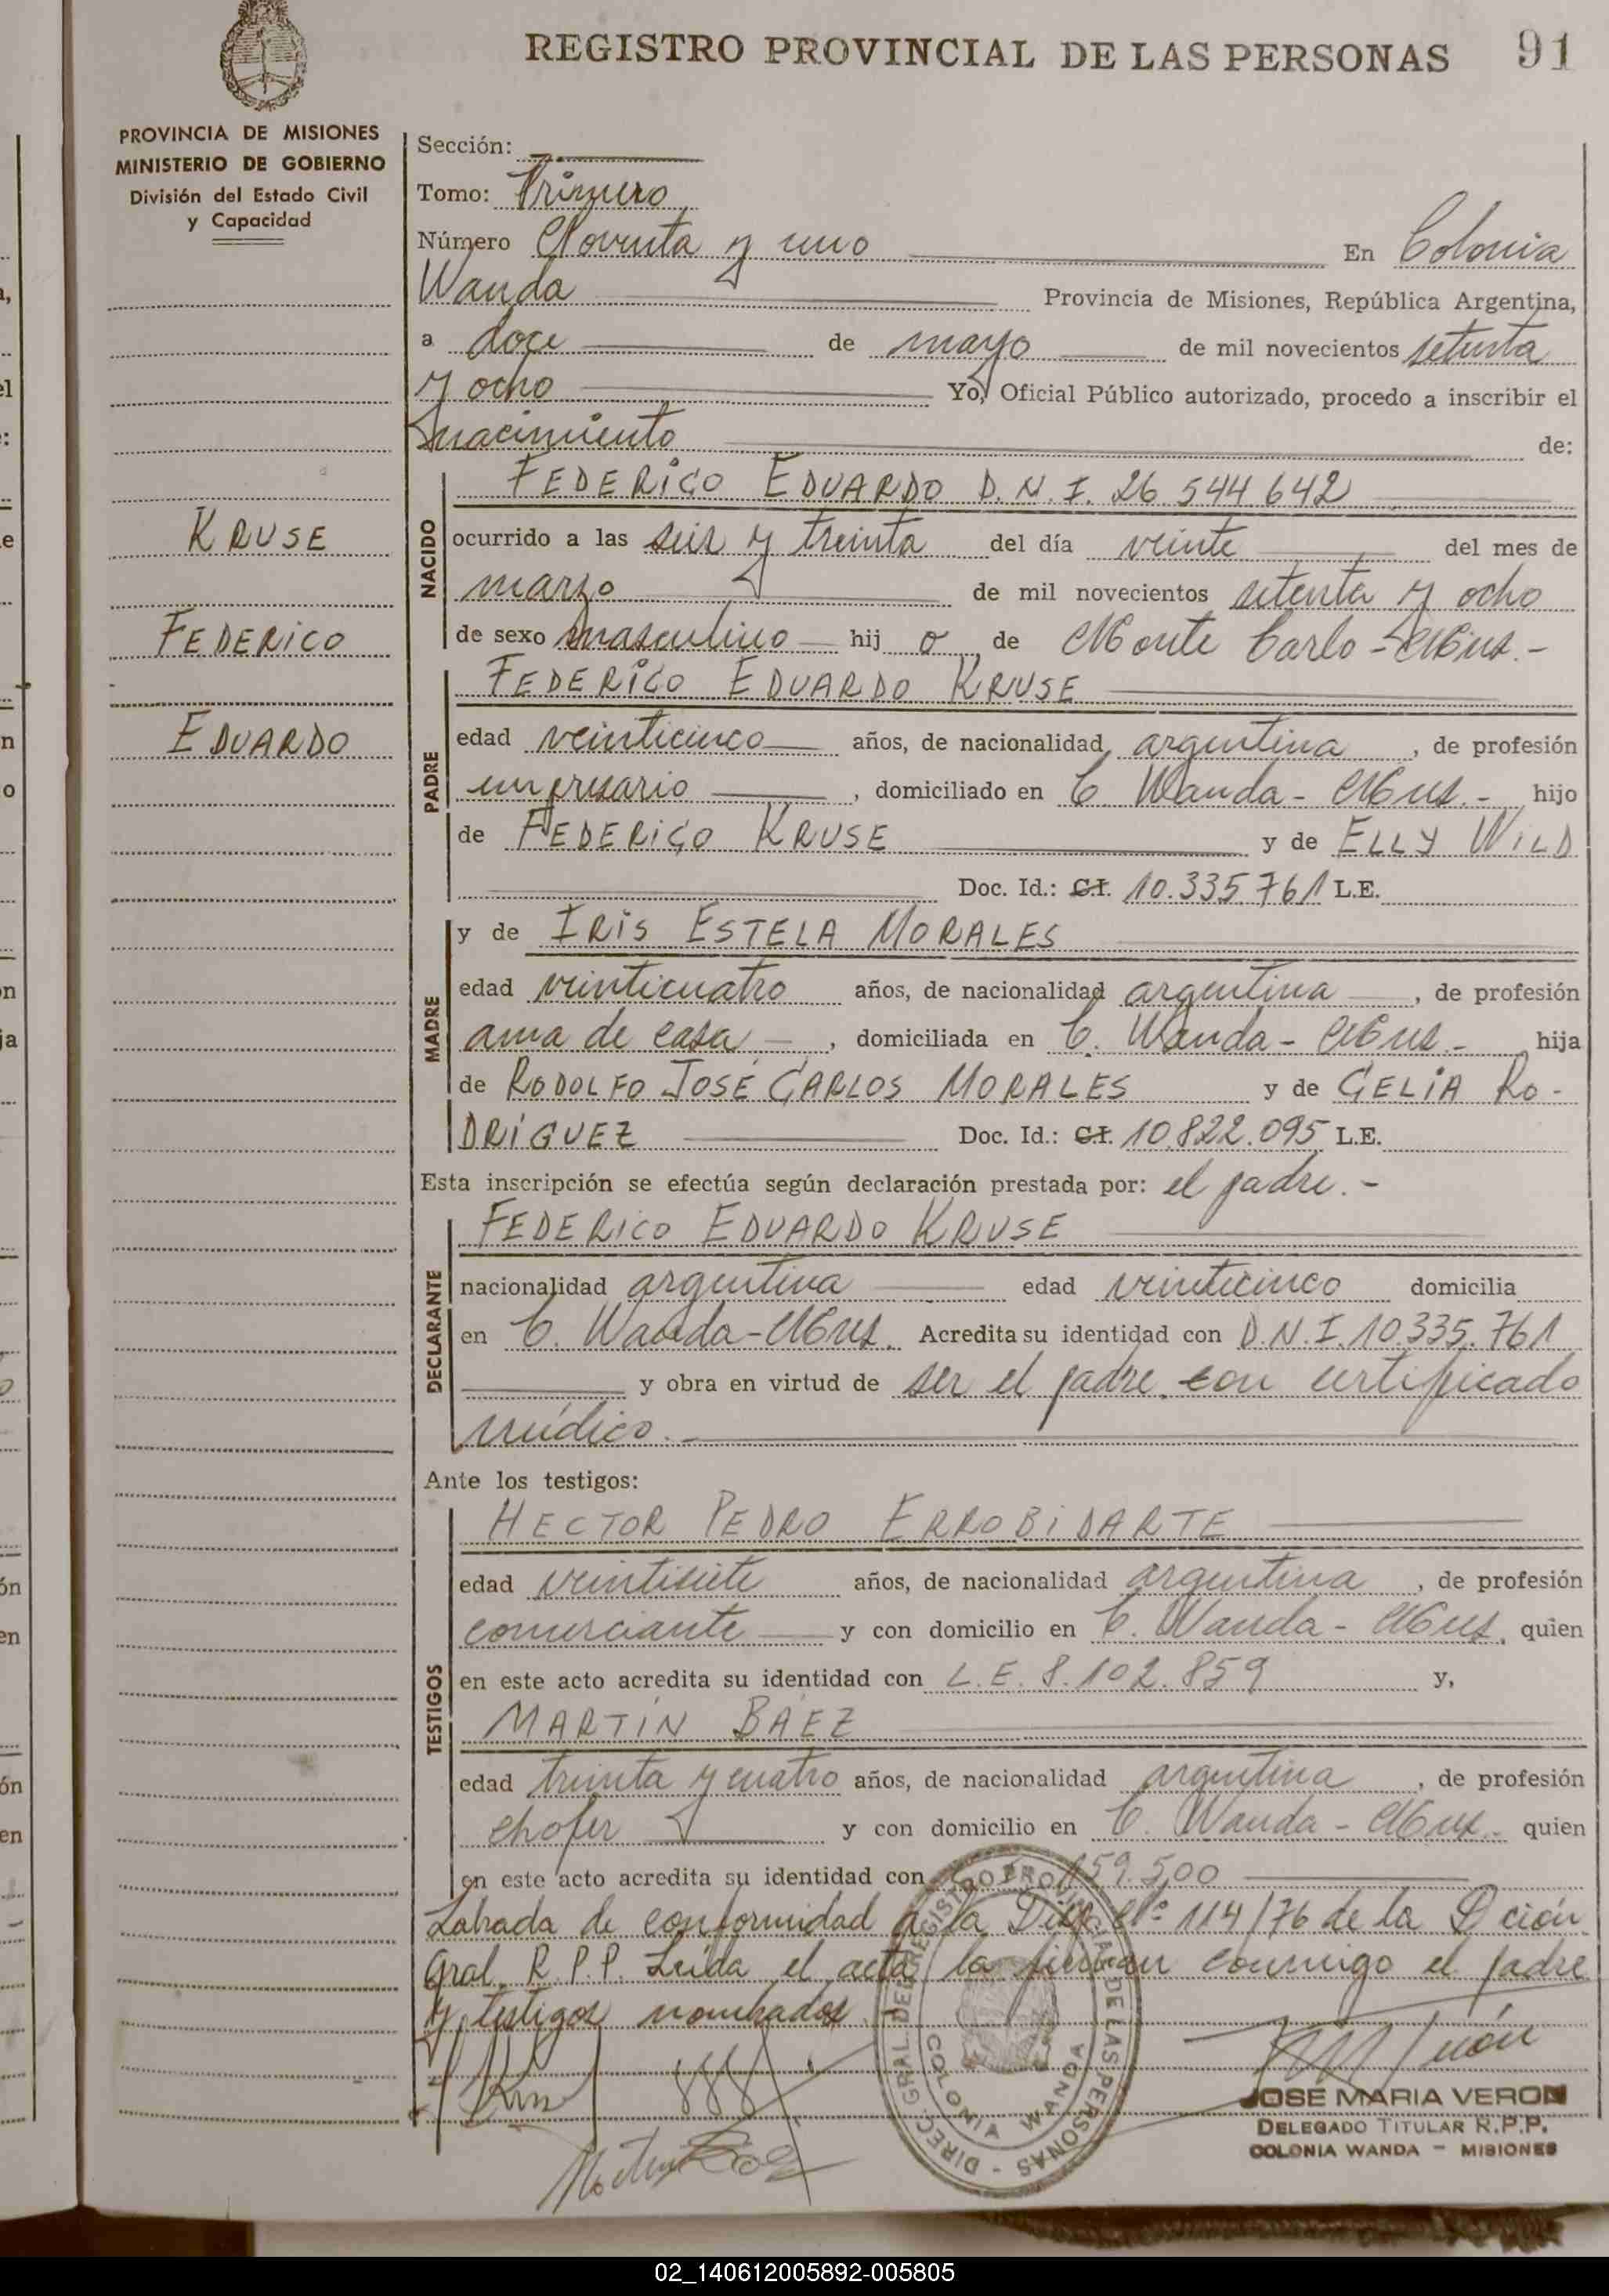 REGISTRO PROVINCIAL DE LAS PERSONAS 91
PROVINCIA DE MISIONES
MINISTERIO DE GOBIERNO
División del Estado Civil
y Capacidad
KRUSE
FEDERICO
EDUARDO
Sección:
Tomo: Primero
Número Noventa y uno En Colonia
Wanda Provincia de Misiones, República Argentina,
a doce de mayo de mil novecientos setenta
y ocho Yo, Oficial Público autorizado, procedo a inscribir el
nacimiento de:
NACIDO
FEDERICO EDUARDO D.N.I. 26 544 642
ocurrido a las seis y treinta del día veinte del mes de
marzo de mil novecientos setenta y ocho
de sexo masculino hij o de Monte Carlo - Mns.-
PADRE
FEDERICO EDUARDO KRUSE
edad veinticinco años, de nacionalidad argentina, de profesión
empresario, domiciliado en C. Wanda - Mns.- hijo
de FEDERICO KRUSE y de ELLY WILD
Doc. Id.: C.I. 10.335.761 L.E.
MADRE
y de IRIS ESTELA MORALES
edad veinticuatro años, de nacionalidad argentina, de profesión
ama de casa, domiciliada en C. Wanda - Mns.- hija
de RODOLFO JOSÉ CARLOS MORALES y de CELIA RO-
DRÍGUEZ Doc. Id.: C.I. 10.822.095 L.E.
Esta inscripción se efectúa según declaración prestada por: el padre.-
DECLARANTE
FEDERICO EDUARDO KRUSE
nacionalidad argentina edad veinticinco domicilia
en C. Wanda - Mns. Acredita su identidad con D.N.I. 10.335.761
y obra en virtud de ser el padre con certificado
médico.-
Ante los testigos:
TESTIGOS
HECTOR PEDRO ERROBIDARTE
edad veintisiete años, de nacionalidad argentina, de profesión
comerciante y con domicilio en C. Wanda - Mns. quien
en este acto acredita su identidad con L.E. 8.102.859 y,
MARTÍN BÁEZ
edad treinta y cuatro años, de nacionalidad argentina, de profesión
chofer y con domicilio en C. Wanda - Mns.- quien
en este acto acredita su identidad con 159.500
Labrada de conformidad a la Disp. Nº 114/76 de la Dción
Gral. R.P.P. Leída el acta la firman conmigo el padre
y testigos nombrados.
DIREC. GRAL. DEL REGISTRO PROVINCIAL DE LAS PERSONAS - COLONIA WANDA
JOSE MARIA VERON
DELEGADO TITULAR R.P.P.
COLONIA WANDA - MISIONES
02_140612005892-005805